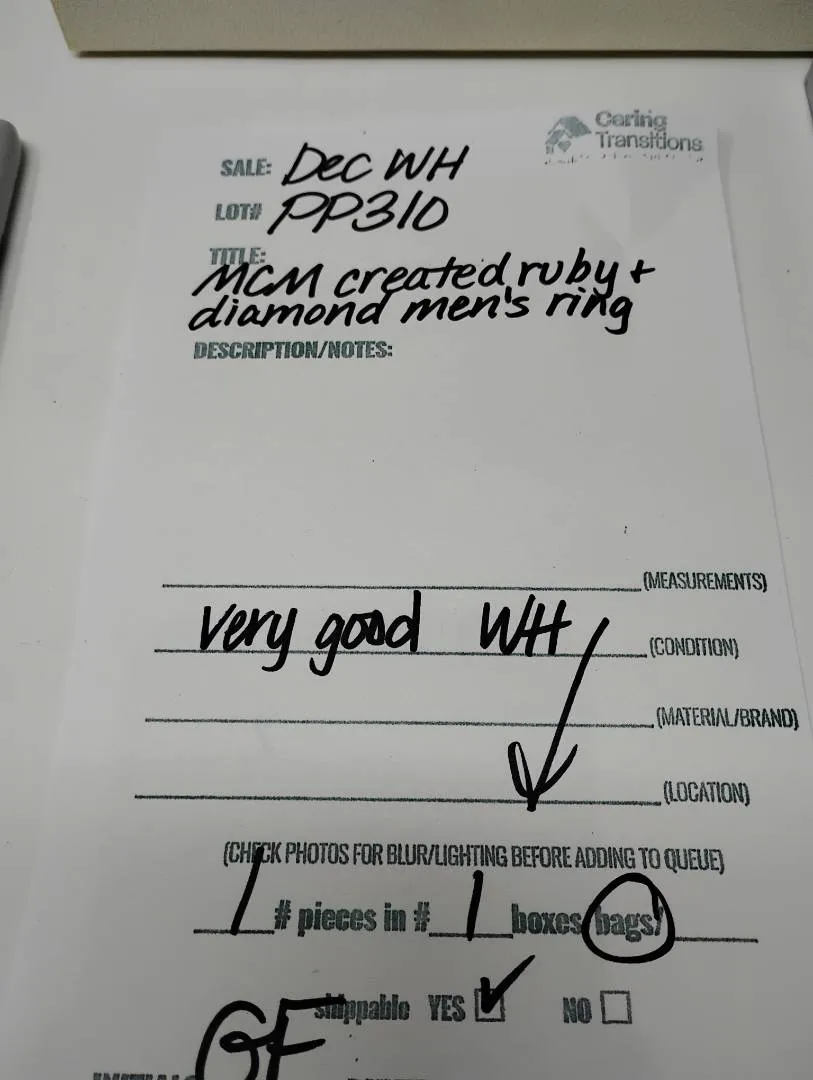 Caring
Transitions
SALE: Dec WH
LOT# PP310
TITLE:
MCM created ruby +
diamond men's ring
DESCRIPTION/NOTES:
(MEASUREMENTS)
very good WH (CONDITION)
(MATERIAL/BRAND)
(LOCATION)
(CHECK PHOTOS FOR BLUR/LIGHTING BEFORE ADDING TO QUEUE)
1 # pieces in # 1 boxes/bags/
shippable YES ✓ NO
GF